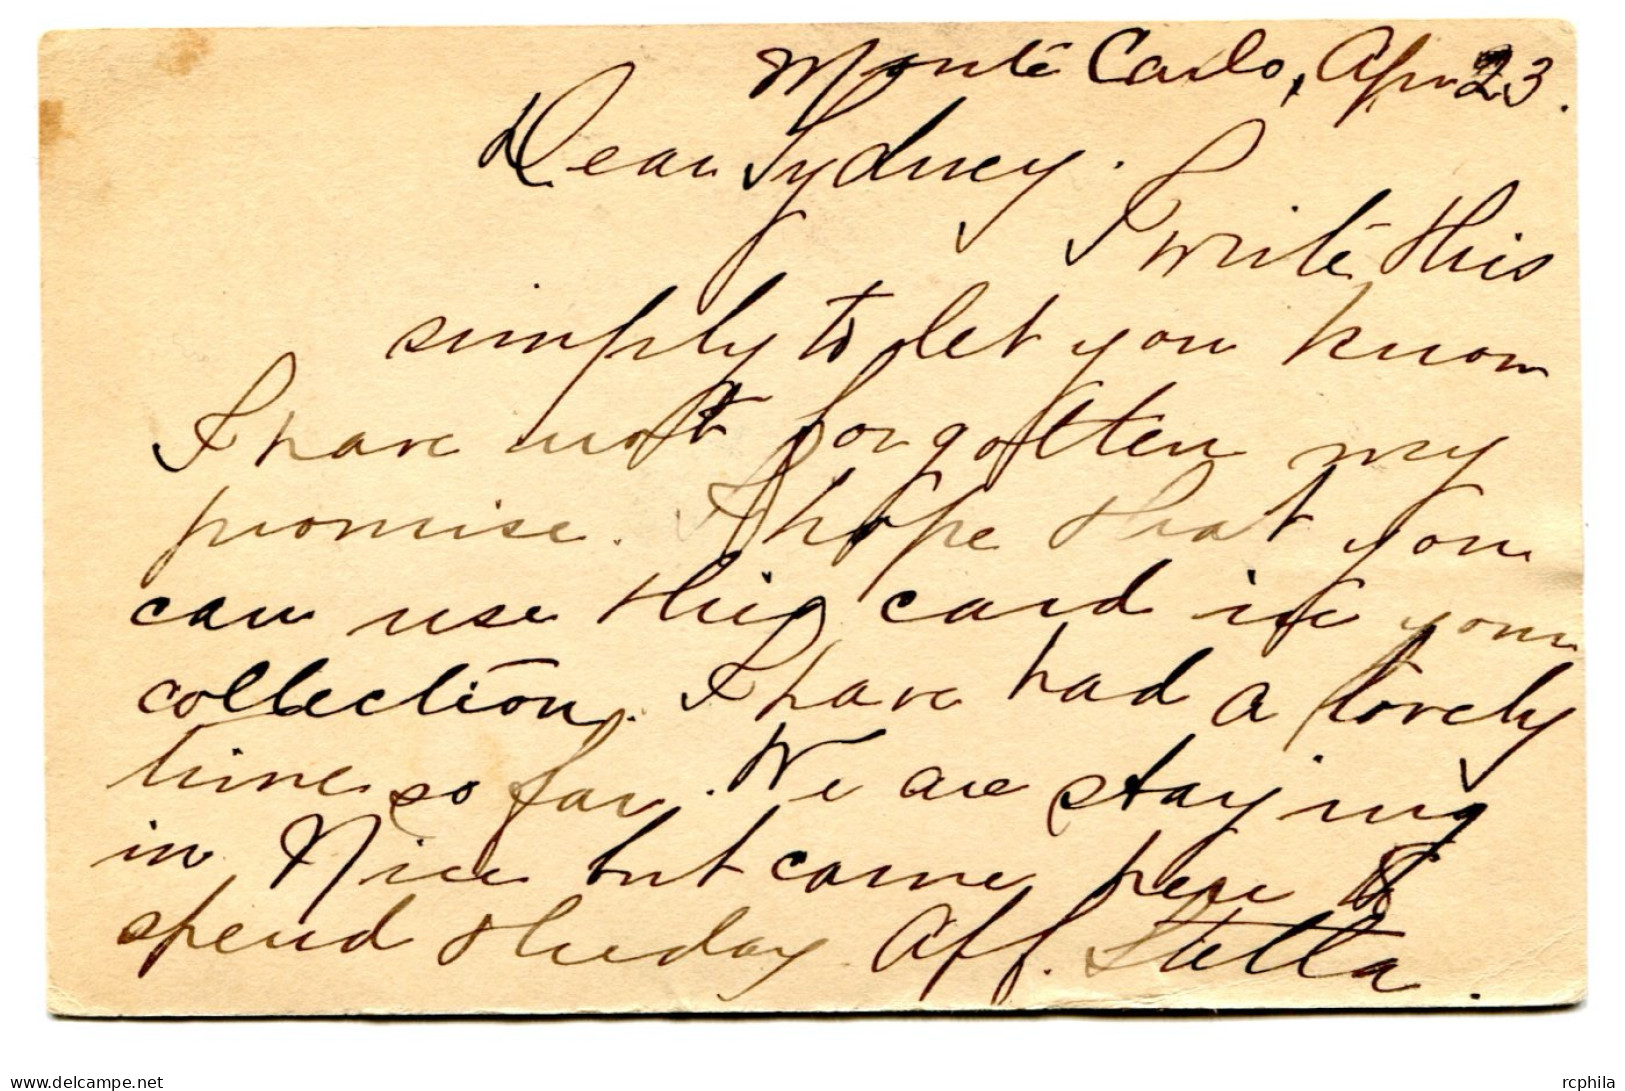 Monte Carlo, Apr 23.
Dear Sydney.
I write this
simply to let you know
I have not forgotten my
promise. I hope that you
can use this card in your
collection. I have had a lovely
time so far. We are staying
in Nice but came here to
spend the day. Aff. Stella.
delcampe.net
rcphila